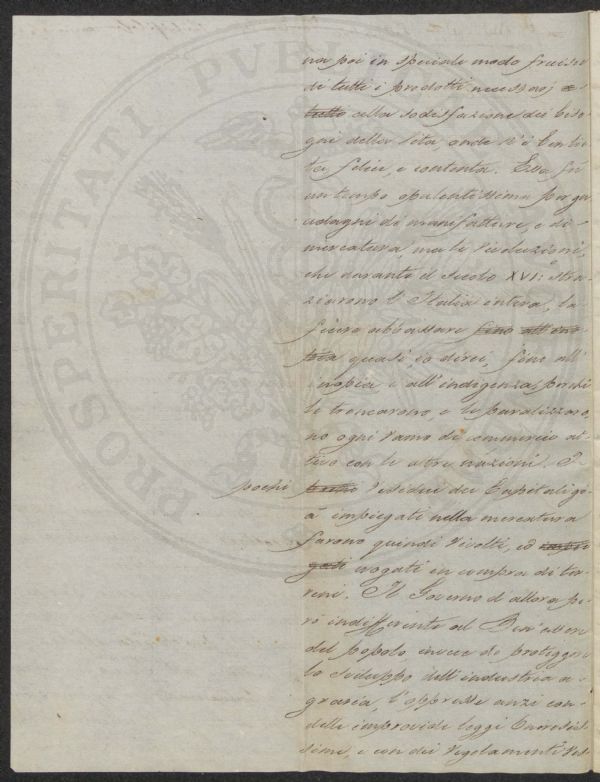 PROSPERITATI PUBLI
na poi in speciale modo fruisce
di tutti i prodotti necessarj a
tutto alla sodisfazione dei biso-
gni della vita, onde n'è
felice, e contenta. Essa fu
un tempo opulentissima per gu-
adagni di manifatture, e di
mercatura, ma le rivoluzioni,
che durante il Secolo XVI: stra-
ziarono l'Italia intera, la
fecero abbassare fino all'ino-
pia quasi io direi, fino all'
inopia e all'indigenza, poichè
le troncarono, e le paralizzaro-
no ogni ramo di commercio at-
tivo con le altre nazioni. I
pochi residui dei Capitali già
pochi
à impiegati nella mercatura
furono quindi rivolti, ed impie-
gati erogati in compra di ter-
reni. Il Governo d'allora pe-
rò indifferente al Ben'essere
del popolo invece di proteggere
lo sviluppo dell'industria a-
graria, l'oppresse anzi con
delle improvide leggi
sime, e con dei regolamenti res-